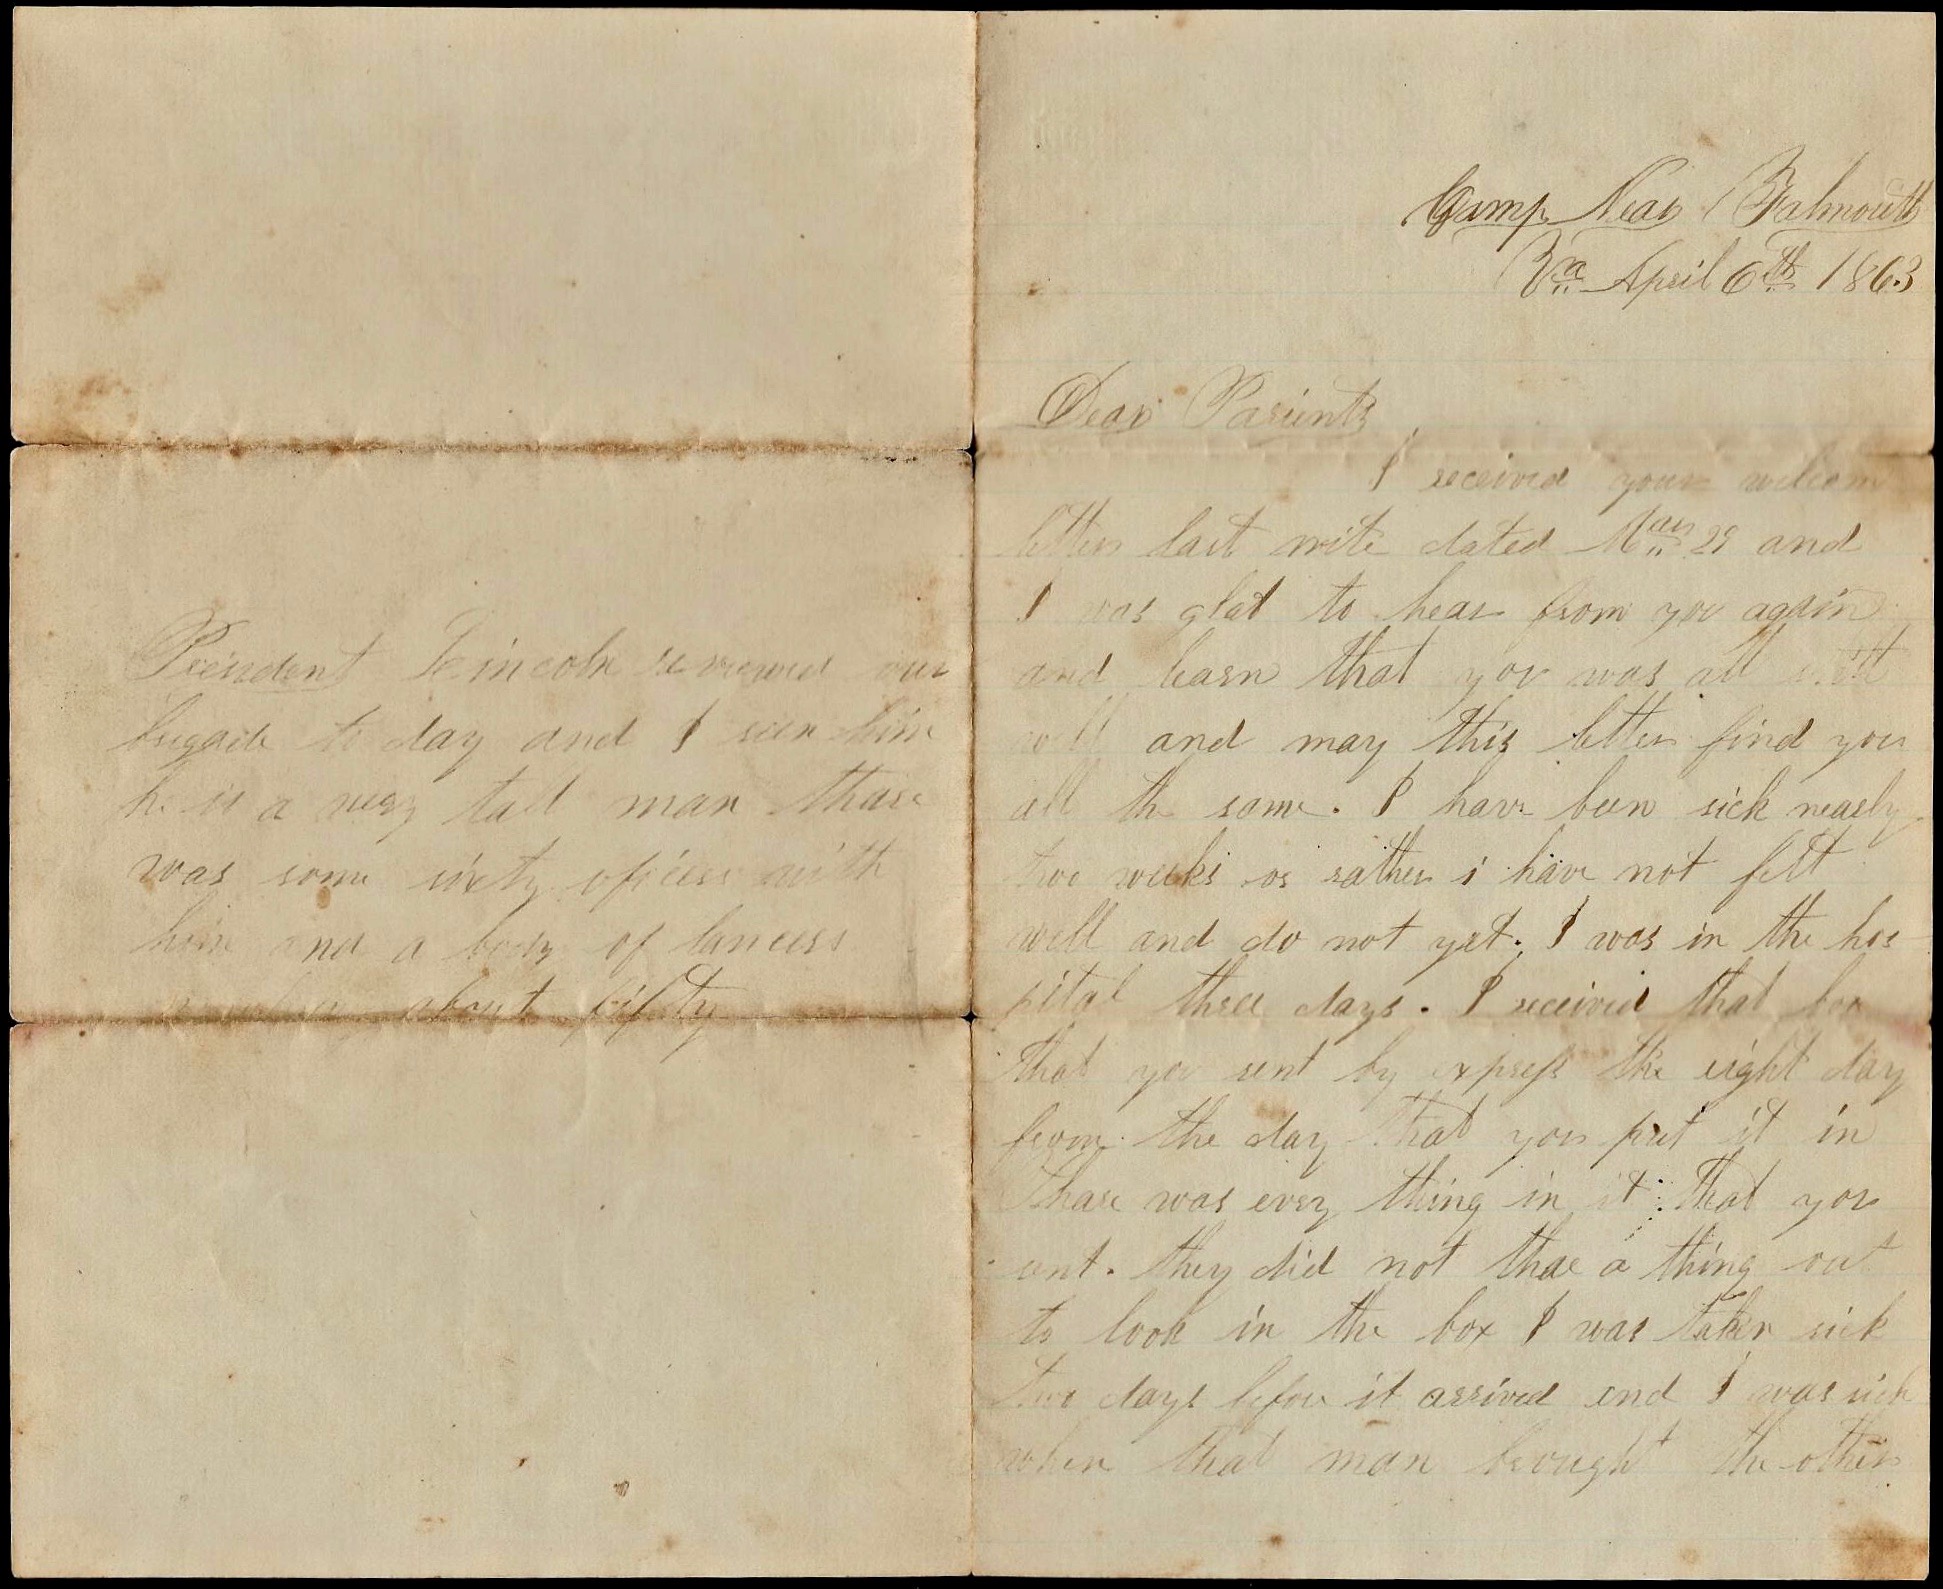 Camp Near Falmouth
Va April 6th 1863
Dear Parients
I received your welcom
letter last nite dated Mar 29 and
I was glad to hear from you again
and learn that you was all
well and may this letter find you
all the same. I have been sick nearly
two weeks or rather i have not felt
well and do not yet. I was in the hos
pital three days. I received that box
that you sent by express the eight day
from the day that you put it in
thare was every thing in it that you
sent. they did not thae a thing out
to look in the box I was taken sick
two days before it arrived and I was sick
when that man brought the other
President Lincoln reviewed our
brigade to day and I seen him
he is a very tall man thare
was some sixty oficers with
him and a body of lancers
about fifty